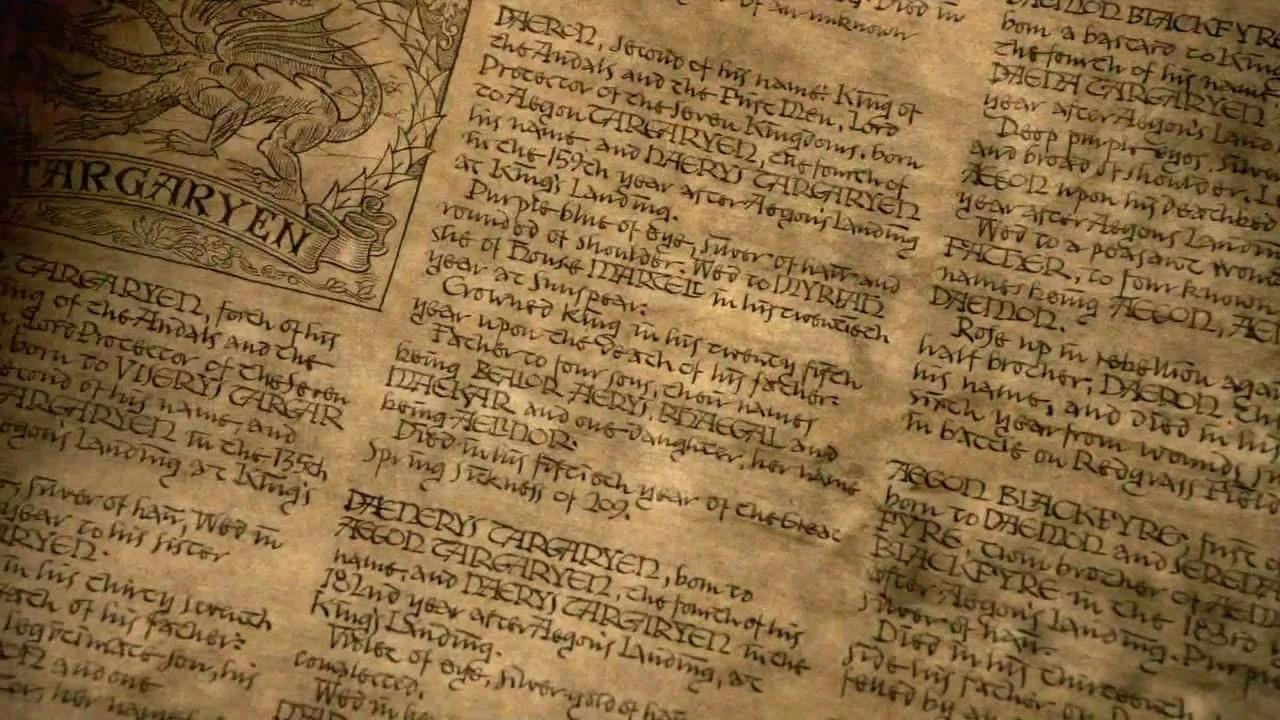 TARGARYEN
TARGARYEN, forth of his
ing of the Andals and the
Lord Protector of the Seven
born to VISERYS TARGAR
econd of his name, and
ARGARYEN in the 135th
egon's Landing at King's
silver of hair, Wed in
year to his sister
RYEN.
in his thirty seventh
eath of his father:
legitimate son, his
and one
her name
Died in
of an unknown
DAERON, second of his name: King of
the Andals and the First Men, Lord
Protector of the Seven Kingdoms. born
to Aegon TARGARYEN, the fourth of
his name and NAERYS TARGARYEN
in the 159th year after Aegon's Landing
at King's Landing.
Purple blue of eye, silver of hair and
rounded of shoulder. Wed to MYRIAH
she of House MARTELL in his twentieth
year at Sunspear.
Crowned King in his twenty fifth
year upon the death of his father.
Father to four sons, their names
being BEALOR, AERYS, RHAEGAL and
MAEKAR and one daughter, her name
being AELINOR:
Died in his fiftieth year of the Great
Spring Sickness of 209.
DAENERYS TARGARYEN, born to
AEGON TARGARYEN, the fourth of his
name, and NAERYS TARGARYEN in the
182nd year after Aegon's Landing, at
King's Landing.
Violet of eye, silver gold of hair
complected.
Wed in he
DAEMON BLACKFYRE
born a bastard to King
the fourth of his name
DAENA TARGARYEN
year after Aegon's Land
Deep purple eyes, silver
and broad of shoulder.
AEGON upon his deathbed
year after Aegons Landin
Wed to a peasant wom
FATHER, to four known
names being AEGON, AE
DAEMON.
Rose up in rebellion again
half brother, DAERON. the
his name, and died in his
sixth year from wounds su
in battle on Redgrass Field
AEGON BLACKFYRE, first
born to DAEMON and SERENA
FYRE, twin brother of AEM
BLACKFYRE in the 183rd
after Aegon's Landing. Purp
silver of hair.
Died in his thirteenth
side his father on
felled by a